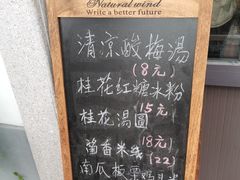 Natural wind
Write a better future
清凉酸梅湯
(8元)
桂花红糖米粉
15元
桂花湯圓
(18元)
酱香米线
(22)
南瓜板栗